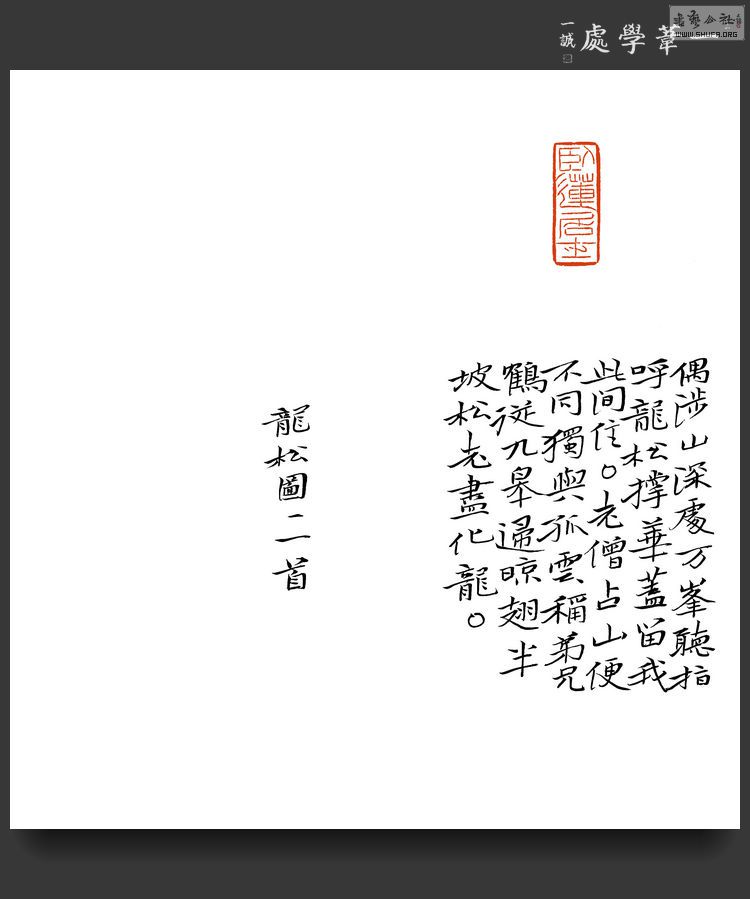 一葦學處
一誠
书艺公社
WWW.SHUFA.ORG
臥蓮居士
偶涉山深處万峯聽指
呼龍松撐華蓋留我
此間住。老僧占山便
不同獨與孤雲稱弟兄
鶴從九皋歸晾翅半
坡松老盡化龍。
龍松圖二首